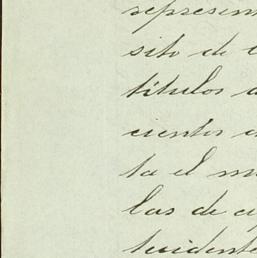 represen
sito de
titulos
cientos
ta el m
las de